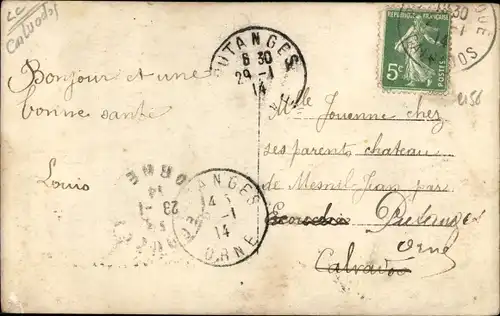 Le
Calvados
Bonjour et une
bonne santé
Louis
PUTANGES
8 30
29 -1
14
REPUBLIQUE FRANÇAISE
5c
POSTES
30
-1
OS
Melle Jouenne chez
ses parents chateau
de Mesnil-Jean par
Ecouché Putanges
Orne
Calvados
ANGES
-1
14
ORNE
ORNE
14